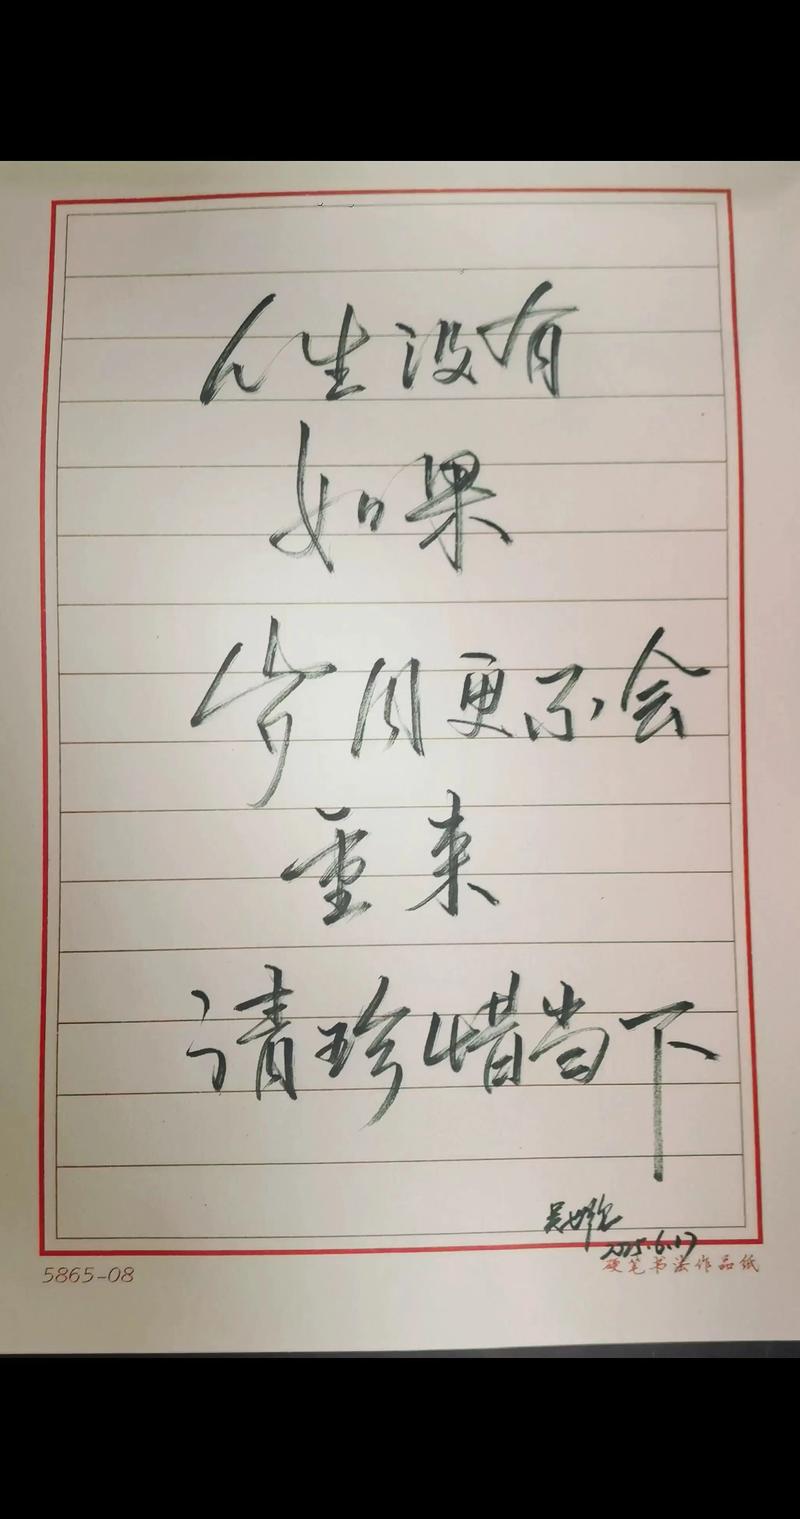 人生没有
如果
岁月更不会
重来
请珍惜当下
2025.6.17
5865-08
硬笔书法作品纸